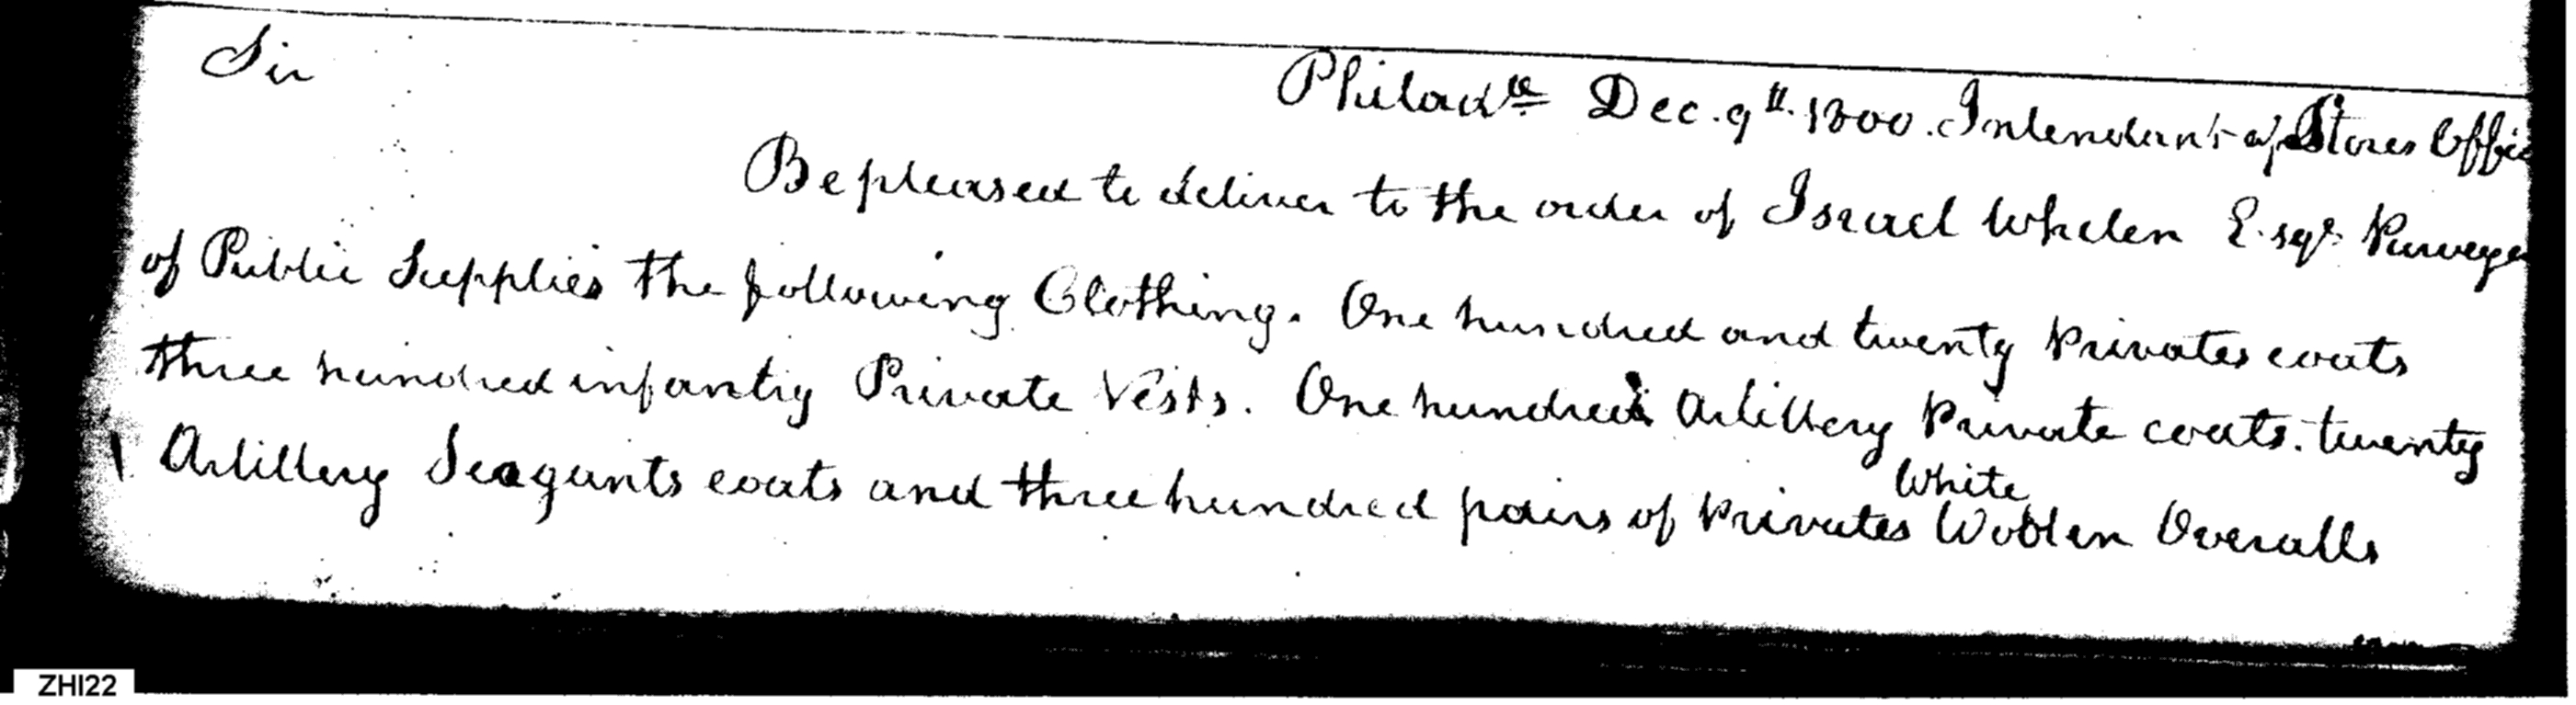 Sir
Philad.ª Dec. 9th. 1800. Intendant of Stores Offic
Be pleased to deliver to the order of Israel Whelen Esqr. Purveye
of Public Supplies the following Clothing. One hundred and twenty privates coats
three hundred infantry Private Vests. One hundred Artillery private coats. twenty
Artillery Seagants coats and three hundred pairs of privates White Woolen Overalls
ZHI22